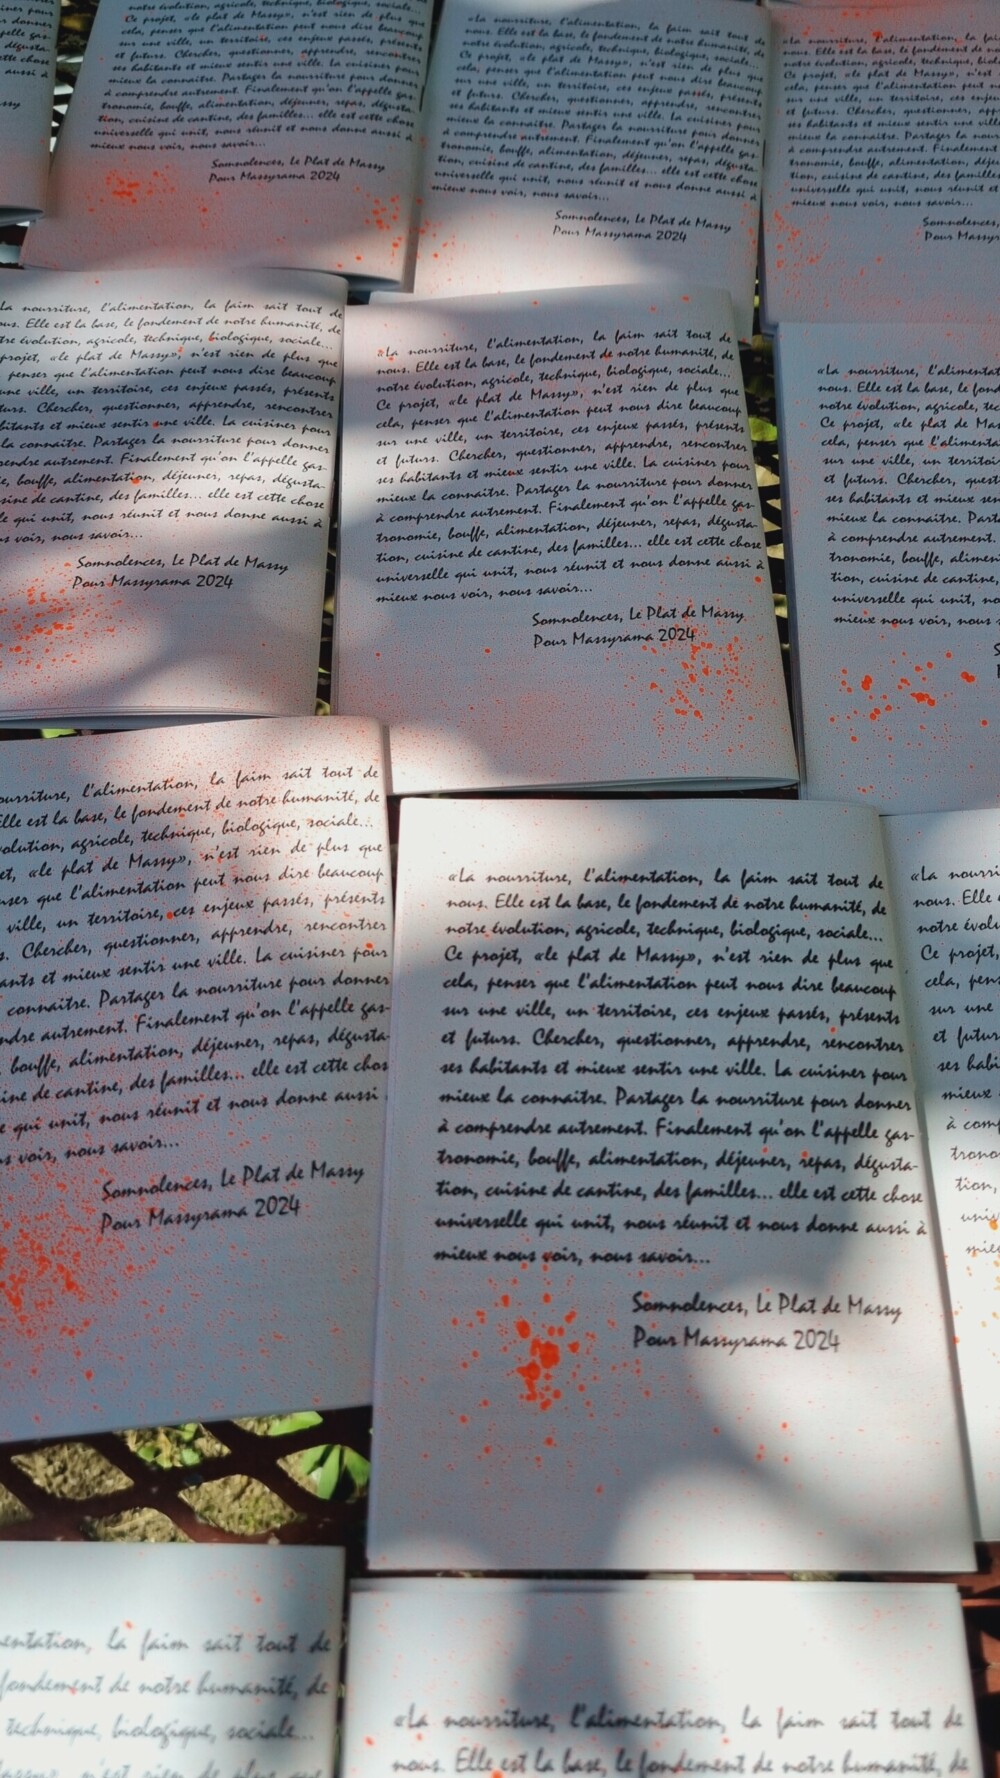 «La nourriture, l'alimentation, la faim sait tout de
nous. Elle est la base, le fondement de notre humanité, de
notre évolution, agricole, technique, biologique, sociale...
Ce projet, «le plat de Massy», n'est rien de plus que
cela, penser que l'alimentation peut nous dire beaucoup
sur une ville, un territoire, ces enjeux passés, présents
et futurs. Chercher, questionner, apprendre, rencontrer
ses habitants et mieux sentir une ville. La cuisiner pour
mieux la connaitre. Partager la nourriture pour donner
à comprendre autrement. Finalement qu'on l'appelle gas-
tronomie, bouffe, alimentation, déjeuner, repas, dégusta-
tion, cuisine de cantine, des familles... elle est cette chose
universelle qui unit, nous réunit et nous donne aussi à
mieux nous voir, nous savoir...
Somnolences, Le Plat de Massy
Pour Massyrama 2024